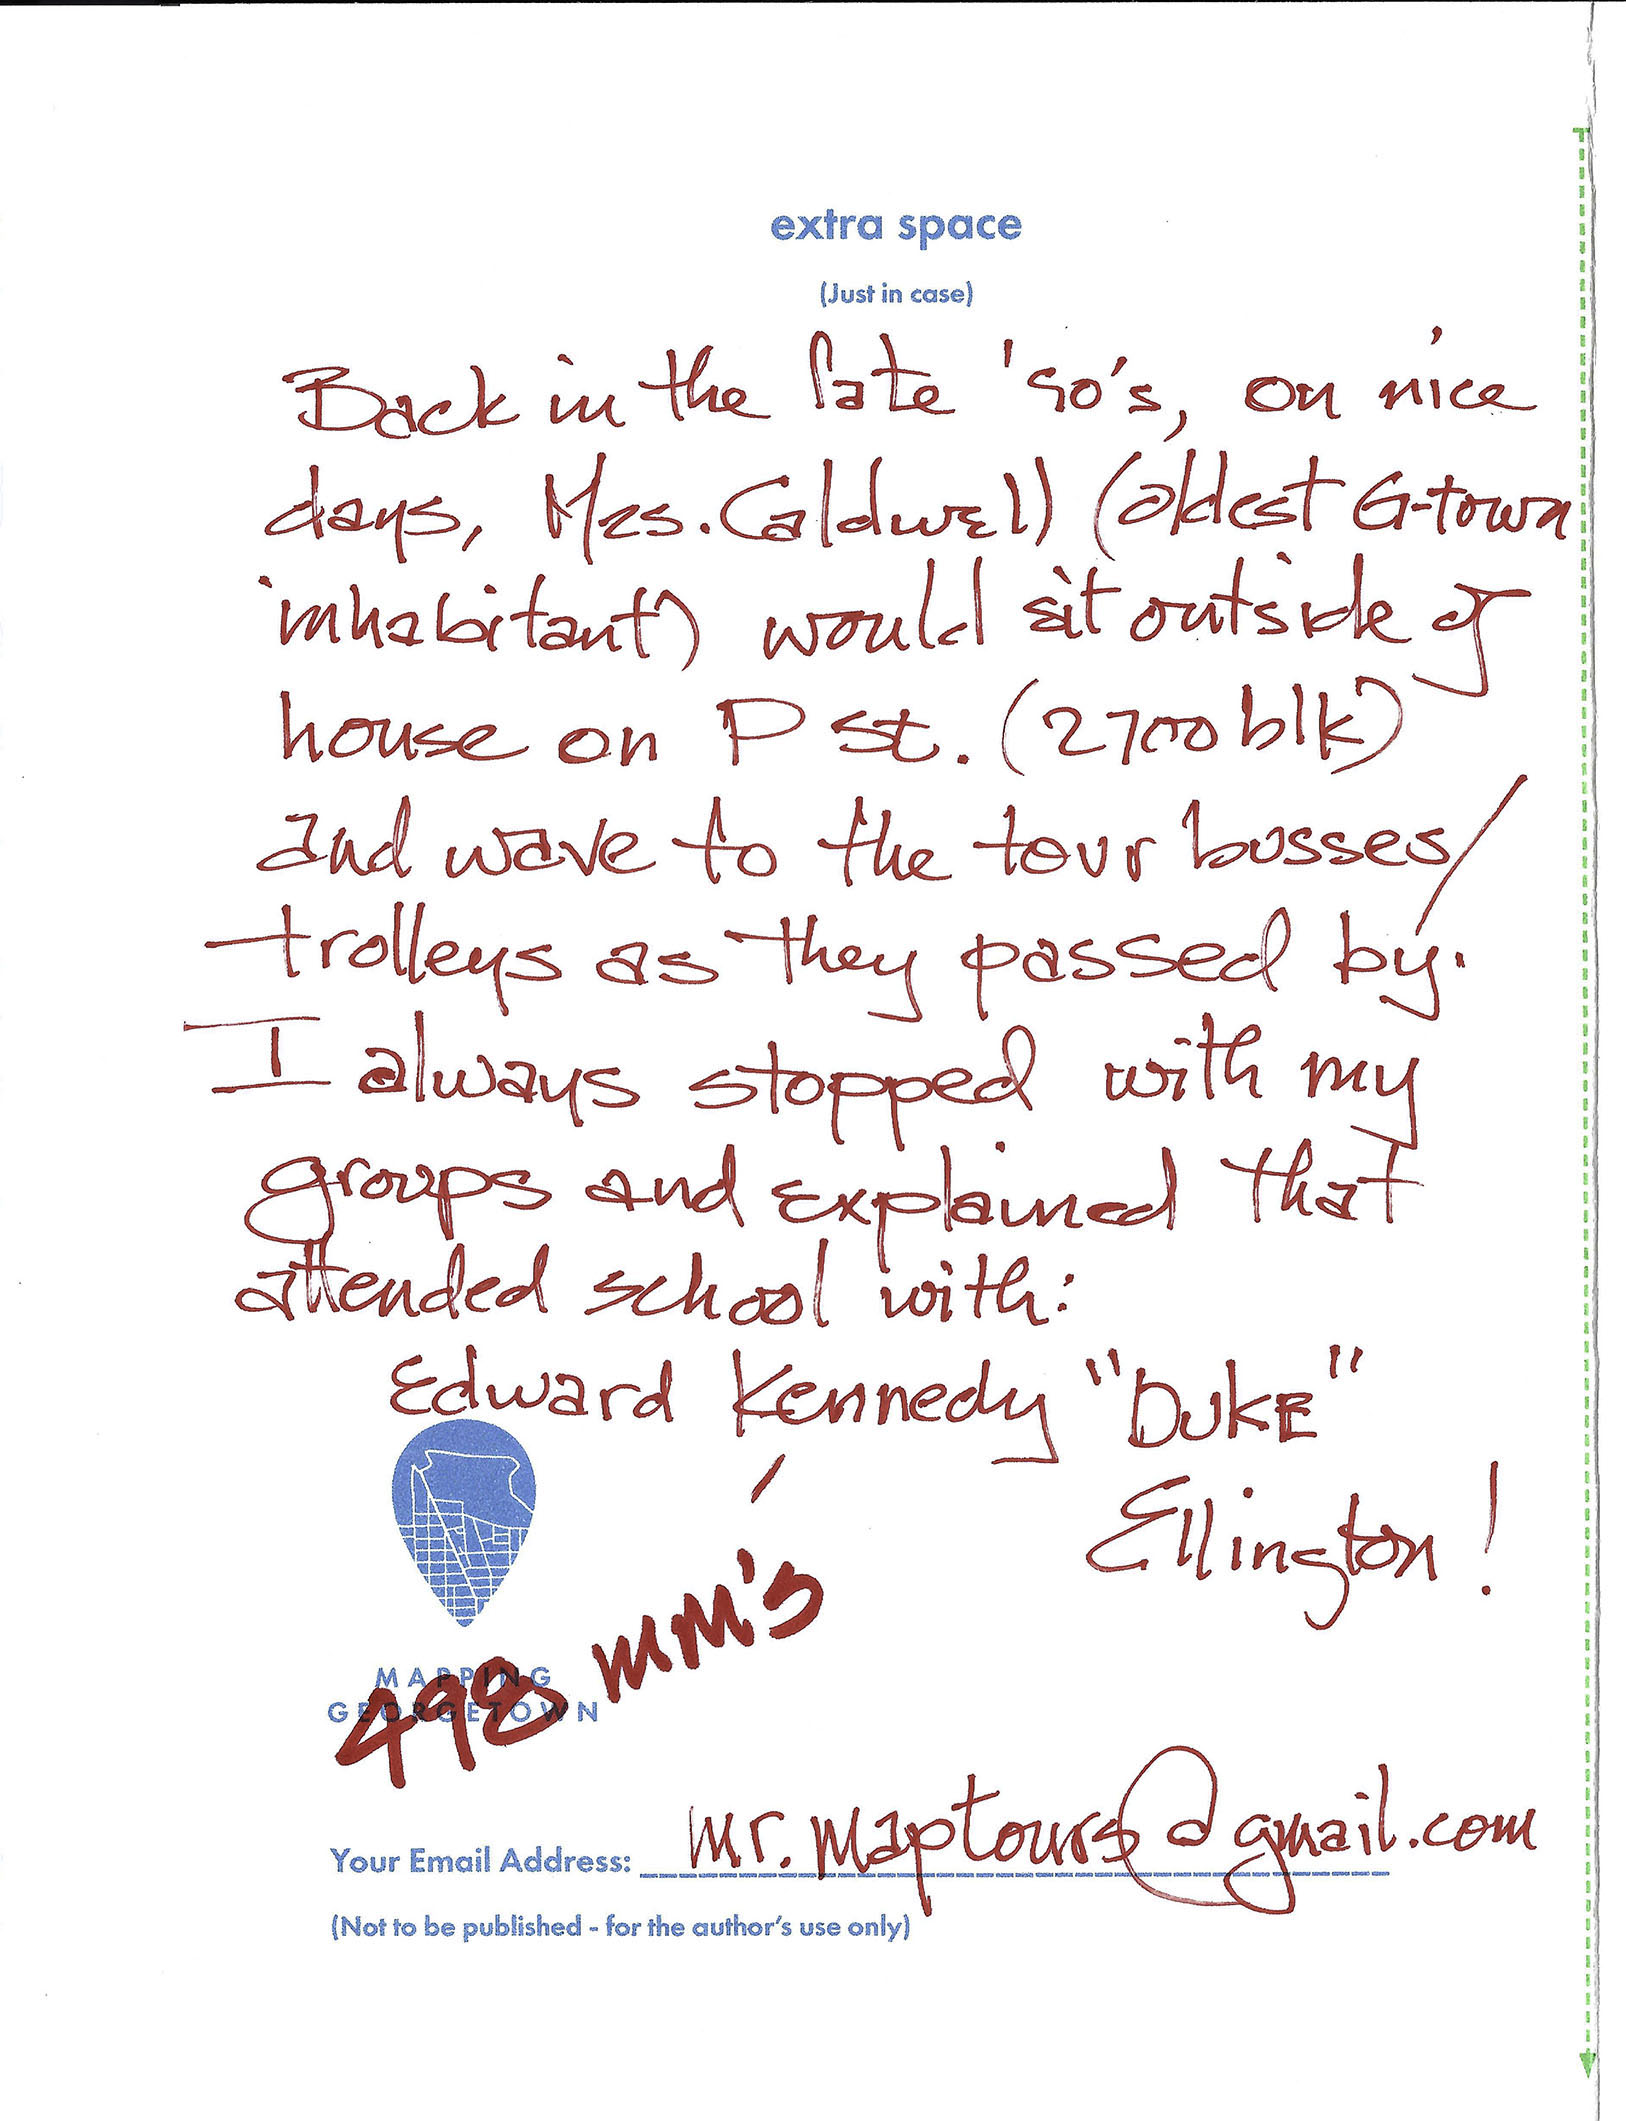 extra space
(Just in case)
Back in the late '90's, on nice
days, Mrs. Caldwell) (oldest G-town
inhabitant) would sit outside of
house on P St. (2700 blk)
and wave to the tour busses/
trolleys as they passed by.
I always stopped with my
groups and explained that
attended school with:
Edward Kennedy "DUKE"
Ellington!
498 MM's
MAPPING
GEORGETOWN
Your Email Address: mr.maptours@gmail.com
(Not to be published - for the author's use only)